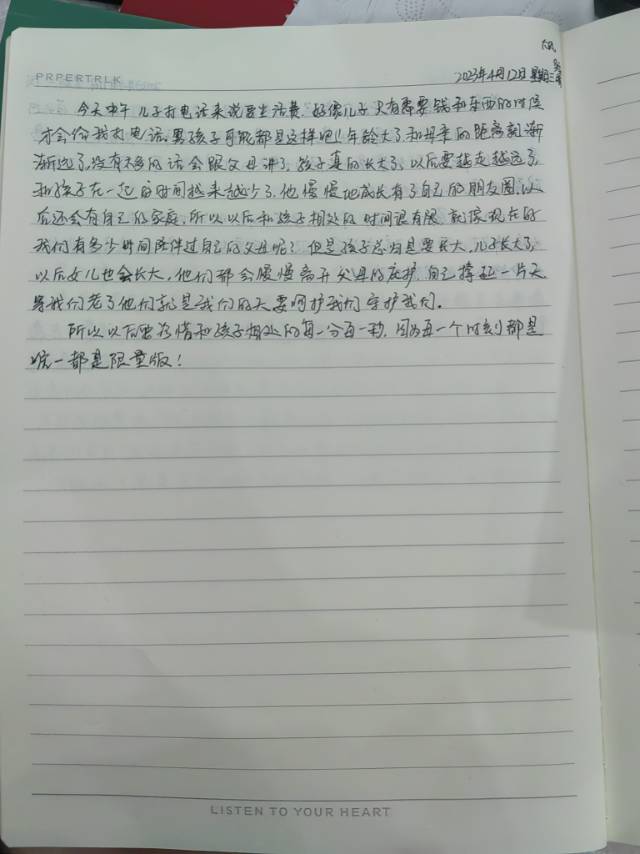 PRPERTRLK 2023年4月12日 星期三
今天中午儿子打电话来说要生活费，好像儿子只有需要钱和东西的时候
才会给我打电话。男孩子可能都是这样吧！年龄大了和母亲的距离就渐
渐远了，没有太多的话会跟父母讲了，孩子真的长大了，以后要越走越远了，
和孩子在一起的时间越来越少了，他慢慢地成长有了自己的朋友圈，以
后还会有自己的家庭，所以以后和孩子相处的时间很有限，就像现在的
我们有多少时间陪伴过自己的父母呢？但是孩子总归是要长大，儿子长大了，
以后女儿也会长大，他们都会慢慢离开父母的庇护，自己撑起一片天
等我们老了他们就是我们的天要呵护我们守护我们。
所以以后要珍惜和孩子相处的每一分每一秒，因为每一个时刻都是
唯一都是限量版！
LISTEN TO YOUR HEART